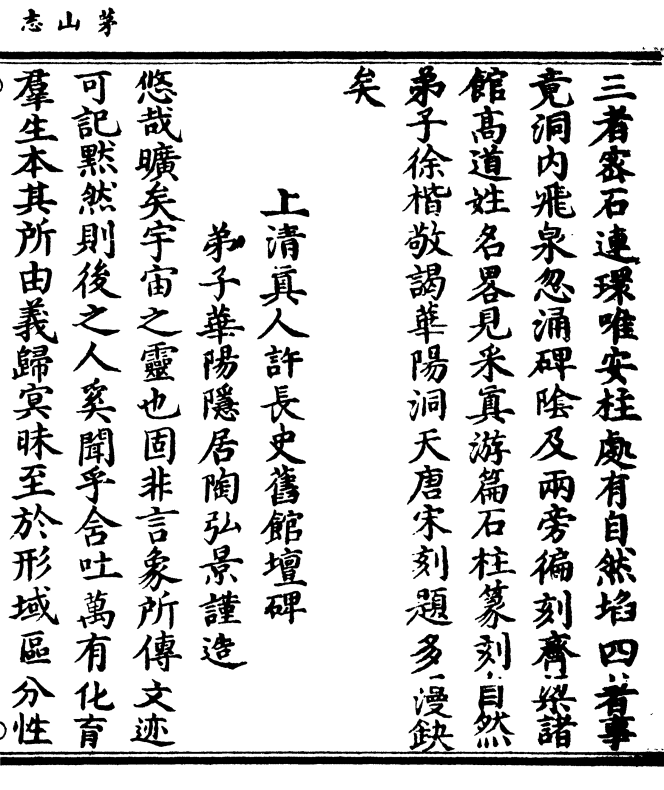 茅山志
三者密石連環唯安柱處有自然埳四者事
竟洞內飛泉忽涌碑陰及兩旁徧刻齊梁諸
館高道姓名畧見采真游篇石柱篆刻自然
弟子徐楷敬謁華陽洞天唐宋刻題多漫缺
矣
上清真人許長史舊館壇碑
弟子華陽隱居陶弘景謹造
悠哉曠矣宇宙之靈也固非言象所傳文迹
可記默然則後之人奚聞乎含吐萬有化育
羣生本其所由義歸冥昧至於形域區分性